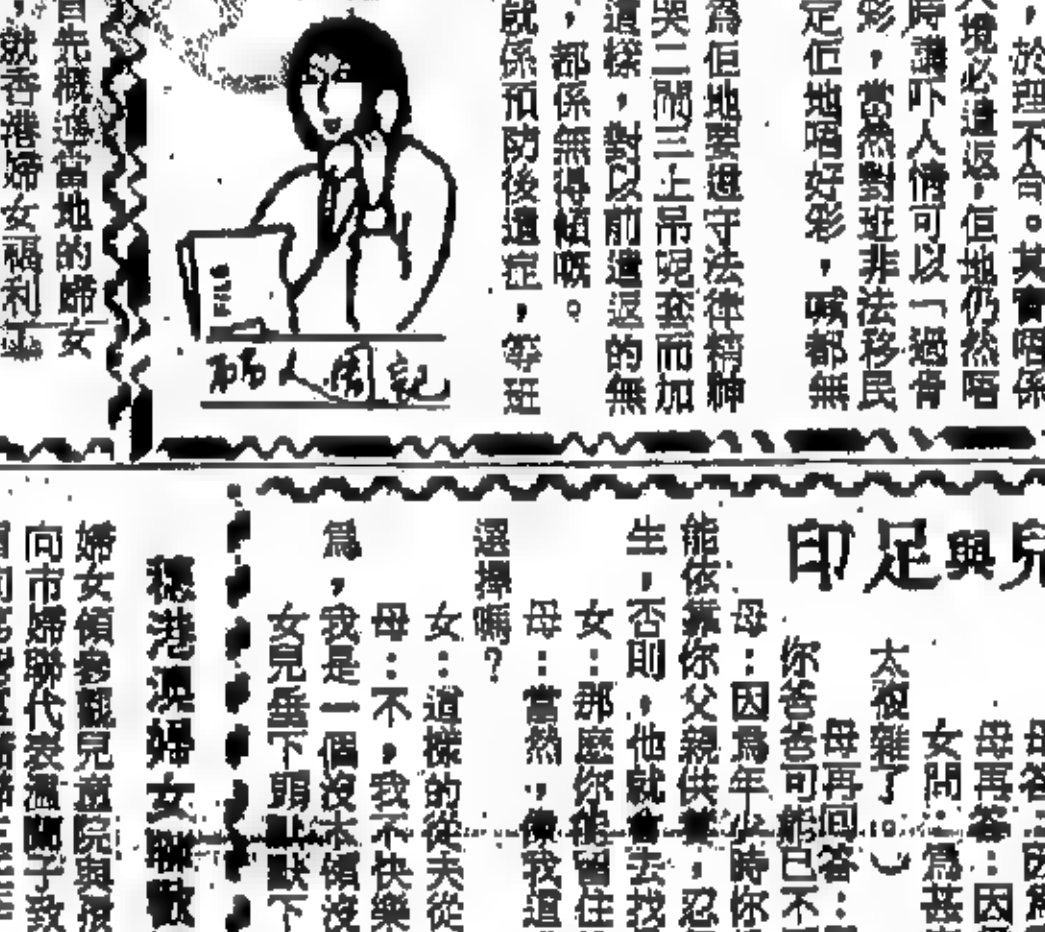 ，於理不合。其實唔係
境必遣返，佢地仍然唔
時講吓人情可以「過骨
彩，當然對班非法移民
定佢地唔好彩，喊都無
為佢地要遵守法律精神
哭二鬧三上吊而加
這樣，對以前遣返的無
，都係無得傾嘅。
就係預防後遺症，等班
FILE
人周記
首先概述當地的婦女
，就香港婦女福利
兒與足印
母答：因為
母再答：因
女問：為甚
太複雜了。）
母再回答：
你爸爸可能已不
母：因為年少時你
能依靠你父親供養，忍
生，否則，他就會去找
女：那麼你能留住
母：當然，像我這
選擇嗎？
女：這樣的從夫從
母：不，我不快樂
為，我是一個沒本領沒
女兒垂下頭，默默下
穗港澳婦女聯歡
婦女領參觀兒童院與
向市婦聯代表溫蘭子致